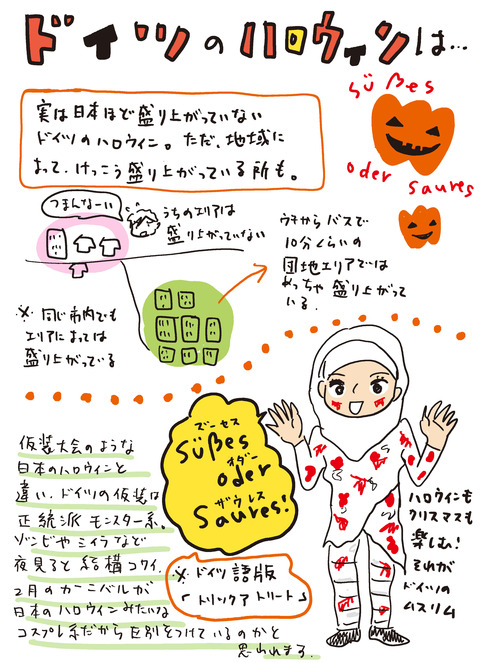 ドイツのハロウィンは…
süßes
oder saures
実は日本ほど盛り上がっていない
ドイツのハロウィン。ただ、地域に
よって、けっこう盛り上がっている所も。
つまんなーい
うちのエリアは
盛り上がっていない
ウチからバスで
10分くらいの
団地エリアでは
めっちゃ盛り上がって
いる.
※ 同じ市内でも
エリアによっては
盛り上がっている
ズーセス
süßes
オダー
oder
ザウレス
saures!
仮装大会のような
日本のハロウィンと
違い、ドイツの仮装は
正統派モンスター系。
ゾンビやミイラなど
夜見ると結構コワイ.
2月のカーニバルが
日本のハロウィンみたいな
コスプレ系だから区別をつけているのかと
思われまする.
※ ドイツ語版
「トリックアトリート」
ハロウィンも
クリスマスも
楽しむ!
それが
ドイツの
ムスリム